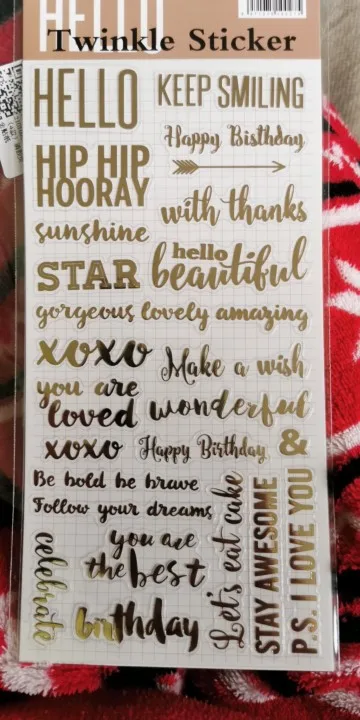 HELLO
Twinkle Sticker
HELLO
KEEP SMILING
Happy Birthday
HIP HIP
HOORAY
with thanks
sunshine
hello
beautiful
STAR
gorgeous lovely amazing
xoxo
Make a wish
you are
loved
wonderful
xoxo
Happy Birthday
&
Be bold be brave
Follow your dreams
you are
the best
celebrate
birthday
Let's eat cake
STAY AWESOME
P.S. I LOVE YOU